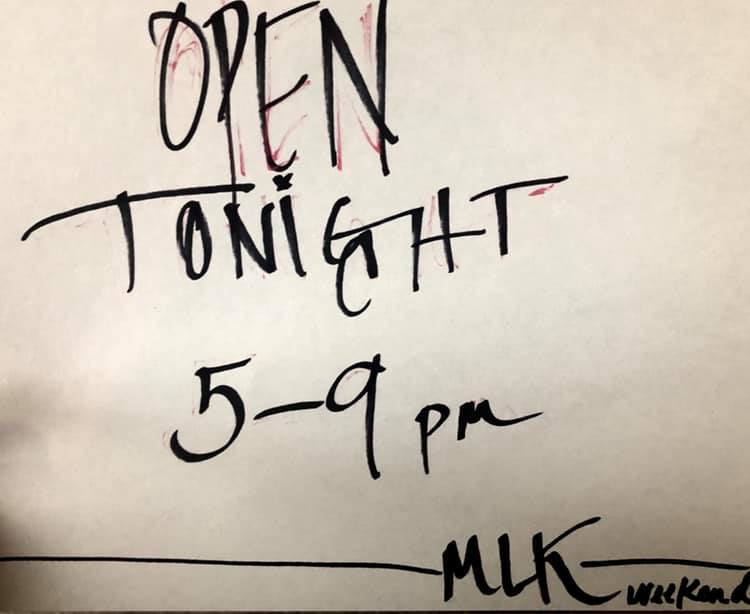 OPEN
TONIGHT
5-9 pm
MLK
weekend